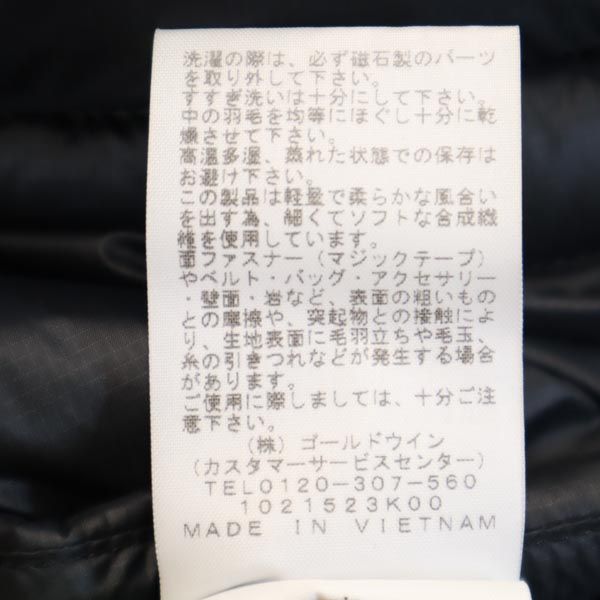 洗濯の際は、必ず磁石製のパーツ
を取り外して下さい。
すすぎ洗いは十分にして下さい。
中の羽毛を均等にほぐし十分に乾
燥させて下さい。
高温多湿、蒸れた状態での保存は
お避け下さい。
この製品は軽量で柔らかな風合い
を出す為、細くてソフトな合成繊
維を使用しています。
面ファスナー（マジックテープ）
やベルト・バッグ・アクセサリー
・壁面・岩など、表面の粗いもの
との摩擦や、突起物との接触によ
り、生地表面に毛羽立ちや毛玉、
糸の引きつれなどが発生する場合
があります。
ご使用に際しましては、十分ご注
意下さい。
（株）ゴールドウイン
（カスタマーサービスセンター）
TEL0120-307-560
1021523K00
MADE IN VIETNAM